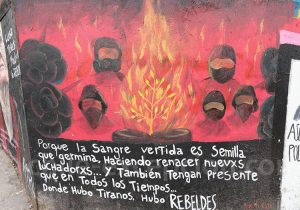 Porque la Sangre vertida es Semilla
que germina. Haciendo renacer nuevxs
luchadorxs... y También Tengan Presente
que en Todos los Tiempos...
Donde Hubo Tiranos, Hubo REBELDES